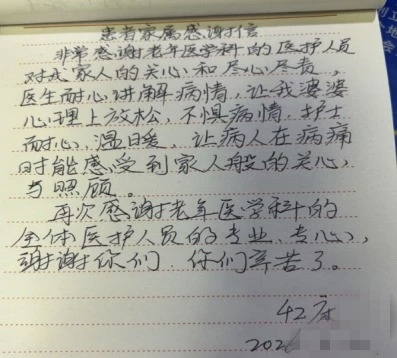 患者家属感谢信
非常感谢老年医学科的医护人员
对我家人的关心和尽心尽责，
医生耐心讲解病情，让我婆婆
心理上放松，不惧病情，护士
耐心、温暖，让病人在病痛
时能感受到家人般的关心
与照顾。
再次感谢老年医学科的
全体医护人员的专业、专心，
谢谢你们，你们辛苦了。
42床
202